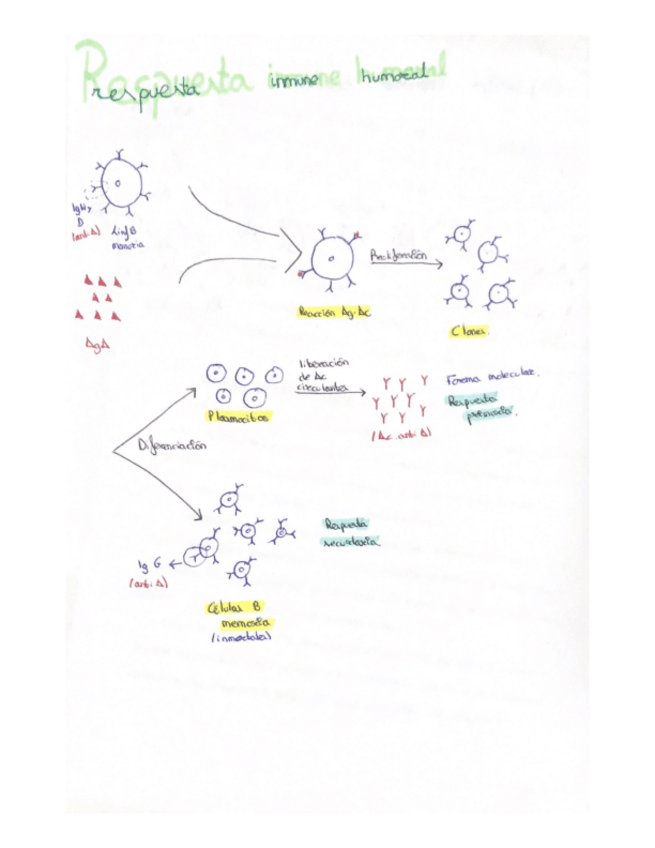 Respuesta inmune humoral
respuesta inmune humoral
IgM y
D
(anti A)
Linf B
AgA
Reacción Ag-Ac
Proliferación
Clones.
Diferenciación
Plasmocitos
liberación
de Ac
circulantes
(Ac anti A)
Forma molecular.
Respuesta
primaria.
Respuesta
secundaria
Ig G
(anti A)
Células B
memoria
(inmortales)